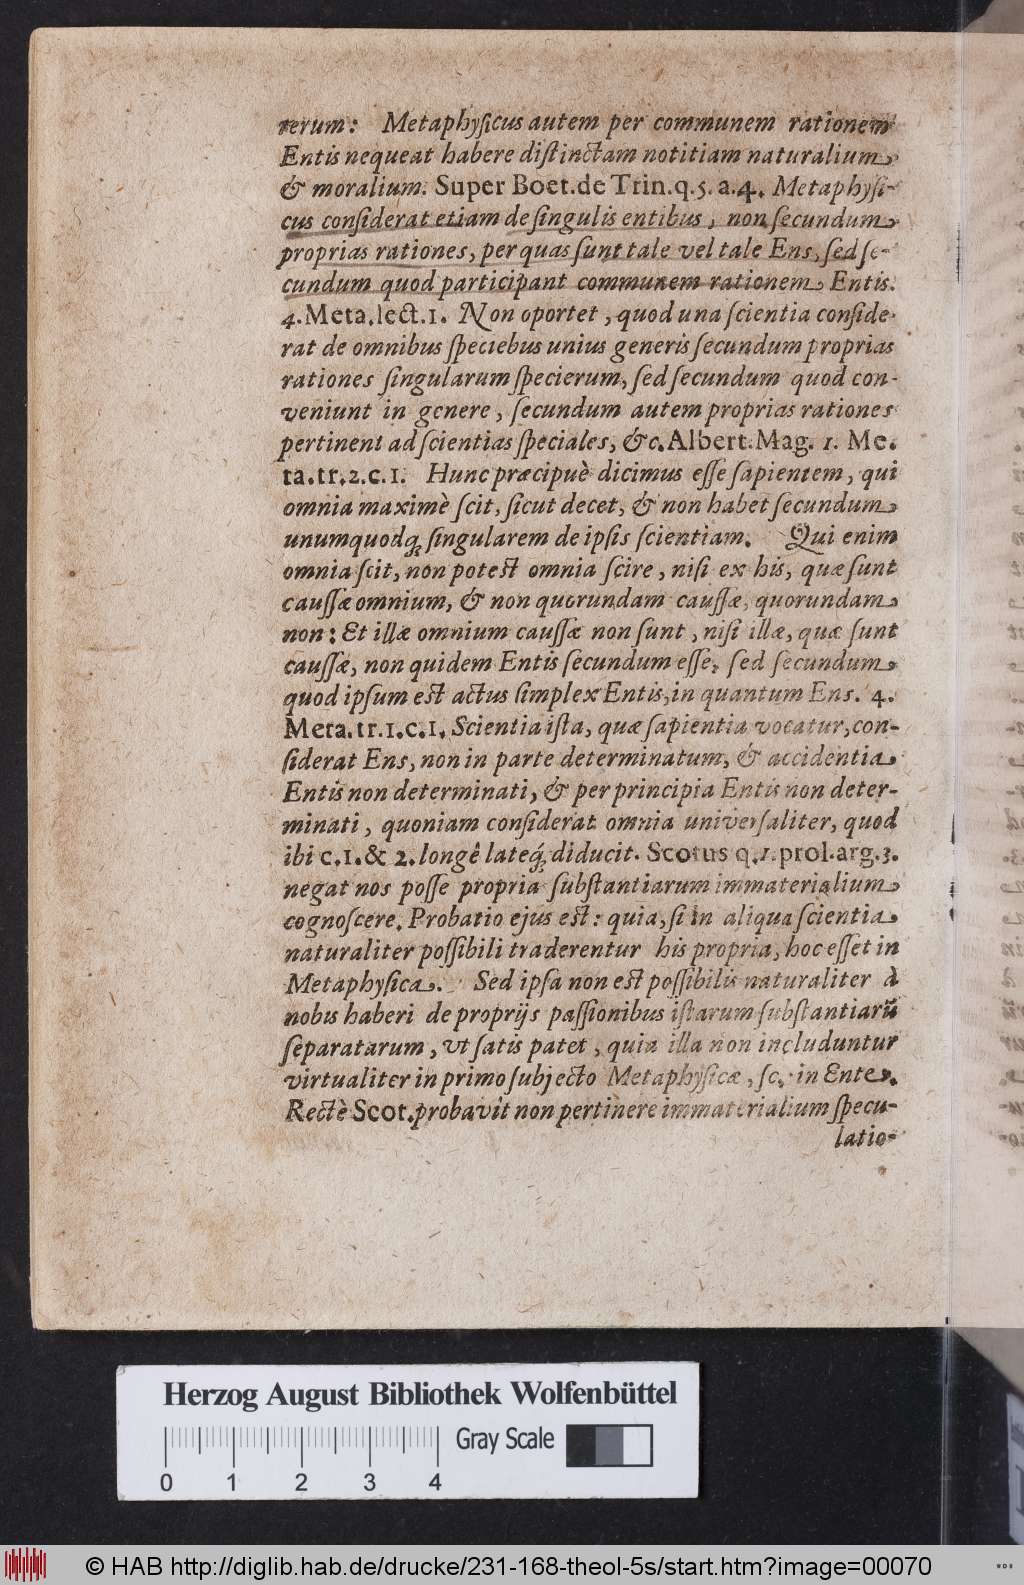 rerum: Metaphyſicus autem per communem rationem
Entis nequeat habere diſtinctam notitiam naturalium
& moralium. Super Boet. de Trin. q. 5. a. 4. Metaphyſi-
cus conſiderat etiam de ſingulis entibus, non ſecundum
proprias rationes, per quas ſunt tale vel tale Ens, ſed ſe-
cundum quod participant communem rationem Entis.
4. Meta. lect. 1. Non oportet, quod una ſcientia conſide-
rat de omnibus ſpeciebus unius generis ſecundum proprias
rationes ſingularum ſpecierum, ſed ſecundum quod con-
veniunt in genere, ſecundum autem proprias rationes
pertinent ad ſcientias ſpeciales, &c. Albert. Mag. 1. Me-
ta. tr. 2. c. 1. Hunc præcipuè dicimus eſſe ſapientem, qui
omnia maximè ſcit, ſicut decet, & non habet ſecundum
unumquodq; ſingularem de ipſis ſcientiam. Qui enim
omnia ſcit, non poteſt omnia ſcire, niſi ex his, quæ ſunt
cauſſæ omnium, & non quorundam cauſſæ, quorundam
non: Et illæ omnium cauſſæ non ſunt, niſi illæ, quæ ſunt
cauſſæ, non quidem Entis ſecundum eſſe, ſed ſecundum
quod ipſum eſt actus ſimplex Entis, in quantum Ens. 4.
Meta. tr. 1. c. 1. Scientia iſta, quæ ſapientia vocatur, con-
ſiderat Ens, non in parte determinatum, & accidentia
Entis non determinati, & per principia Entis non deter-
minati, quoniam conſiderat omnia univerſaliter, quod
ibi c. 1. & 2. longê lateq; diducit. Scotus q. 1. prol. arg. 3.
negat nos poſſe propria ſubſtantiarum immaterialium
cognoſcere. Probatio ejus eſt: quia, ſi in aliqua ſcientia
naturaliter poſſibili traderentur his propria, hoc eſſet in
Metaphyſica. Sed ipſa non eſt poſſibilis naturaliter à
nobis haberi de proprijs paſſionibus iſtarum ſubſtantiarũ
ſeparatarum, ut ſatis patet, quia illa non includuntur
virtualiter in primo ſubjecto Metaphyſicæ, ſc. in Ente.
Rectè Scot. probavit non pertinere immaterialium ſpecu-
latio-
Herzog August Bibliothek Wolfenbüttel
Gray Scale
0 1 2 3 4
© HAB http://diglib.hab.de/drucke/231-168-theol-5s/start.htm?image=00070